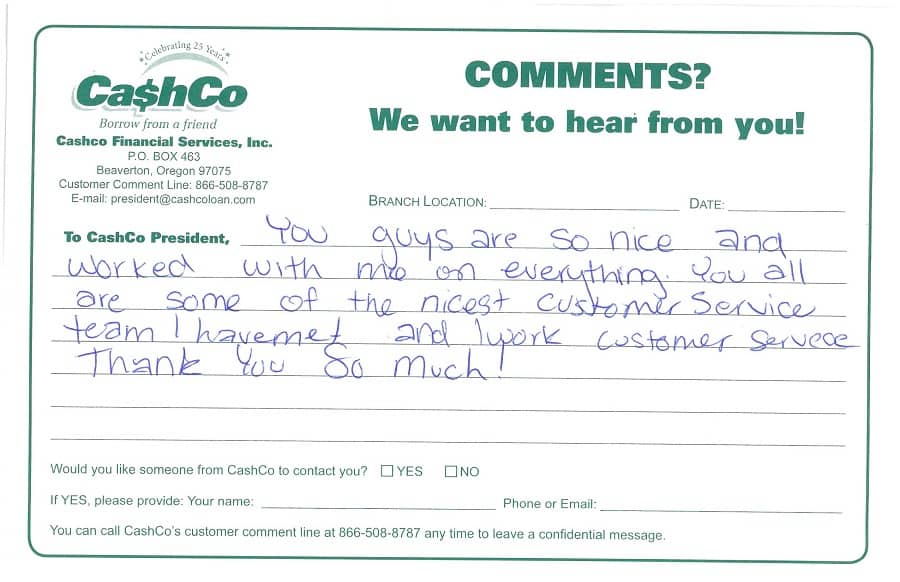 Celebrating 25 Years
Ca$hCo
Borrow from a friend
Cashco Financial Services, Inc.
P.O. BOX 463
Beaverton, Oregon 97075
Customer Comment Line: 866-508-8787
E-mail: president@cashcoloan.com
COMMENTS?
We want to hear from you!
BRANCH LOCATION: DATE:
To CashCo President, You guys are so nice and
worked with me on everything. You all
are some of the nicest customer service
team I have met and I work customer servece
Thank you so much!
Would you like someone from CashCo to contact you? YES NO
If YES, please provide: Your name: Phone or Email:
You can call CashCo's customer comment line at 866-508-8787 any time to leave a confidential message.